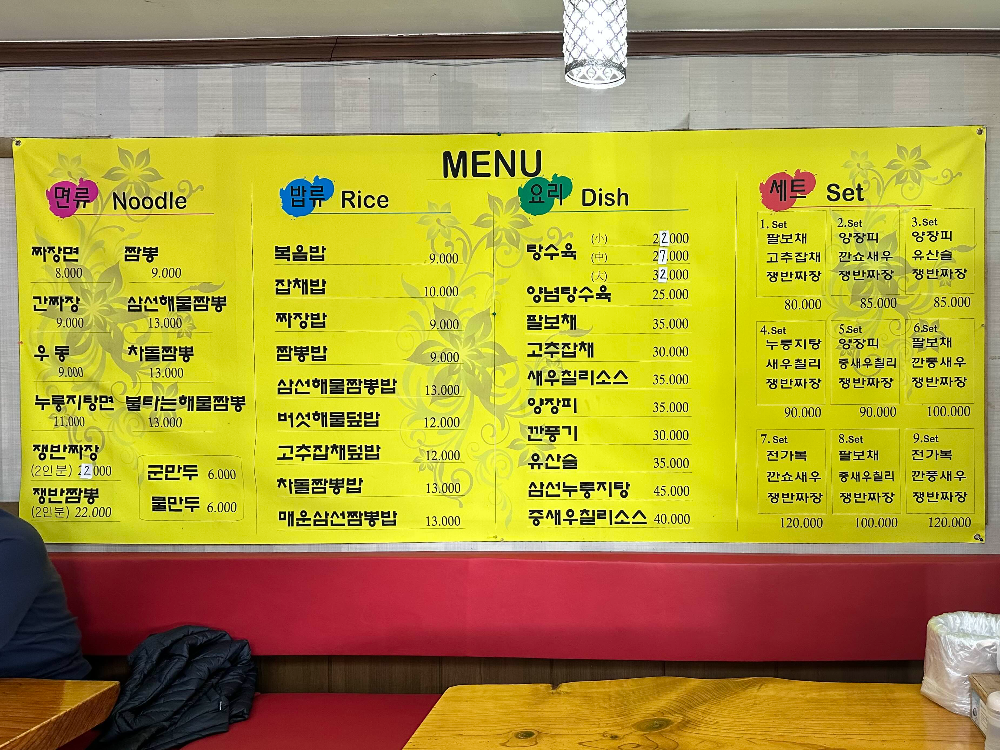 MENU
면류 Noodle
짜장면 짬뽕
8.000 9.000
간짜장 삼선해물짬뽕
9.000 13.000
우동 차돌짬뽕
9.000 13.000
누룽지탕면 불타는해물짬뽕
11.000 13.000
쟁반짜장
(2인분) 22.000
쟁반짬뽕
(2인분) 22.000
군만두 6.000
물만두 6.000
밥류 Rice
볶음밥 9.000
잡채밥 10.000
짜장밥 9.000
짬뽕밥 9.000
삼선해물짬뽕밥 13.000
버섯해물덮밥 12.000
고추잡채덮밥 12.000
차돌짬뽕밥 13.000
매운삼선짬뽕밥 13.000
요리 Dish
탕수육 (小) 22.000
(中) 27.000
(大) 32.000
양념탕수육 25.000
팔보채 35.000
고추잡채 30.000
새우칠리소스 35.000
양장피 35.000
깐풍기 30.000
유산슬 35.000
삼선누룽지탕 45.000
중새우칠리소스 40.000
세트 Set
1.Set
팔보채
고추잡채
쟁반짜장
80.000
2.Set
양장피
깐쇼새우
쟁반짜장
85.000
3.Set
양장피
유산슬
쟁반짜장
85.000
4.Set
누룽지탕
새우칠리
쟁반짜장
90.000
5.Set
양장피
중새우칠리
쟁반짜장
90.000
6.Set
팔보채
깐풍새우
쟁반짜장
100.000
7.Set
전가복
깐쇼새우
쟁반짜장
120.000
8.Set
팔보채
중새우칠리
쟁반짜장
100.000
9.Set
전가복
깐풍새우
쟁반짜장
120.000